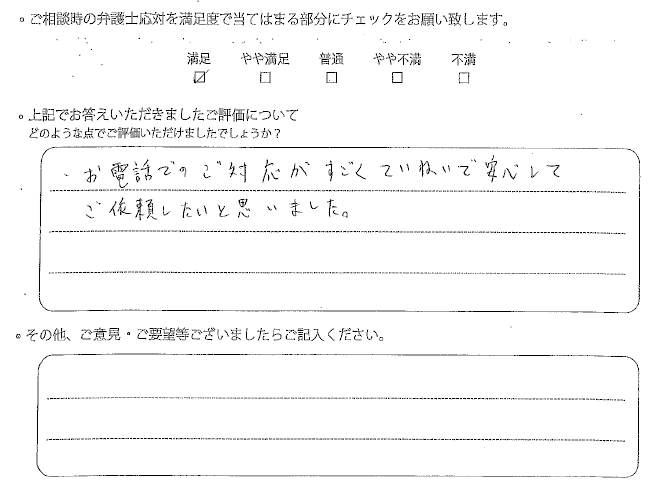 。ご相談時の弁護士応対を満足度で当てはまる部分にチェックをお願い致します。
満足 やや満足 普通 やや不満 不満
☑ □ □ □ □
。上記でお答えいただきましたご評価について
どのような点でご評価いただけましたでしょうか？
・お電話でのご対応がすごくていねいで安心して
ご依頼したいと思いました。
。その他、ご意見・ご要望等ございましたらご記入ください。